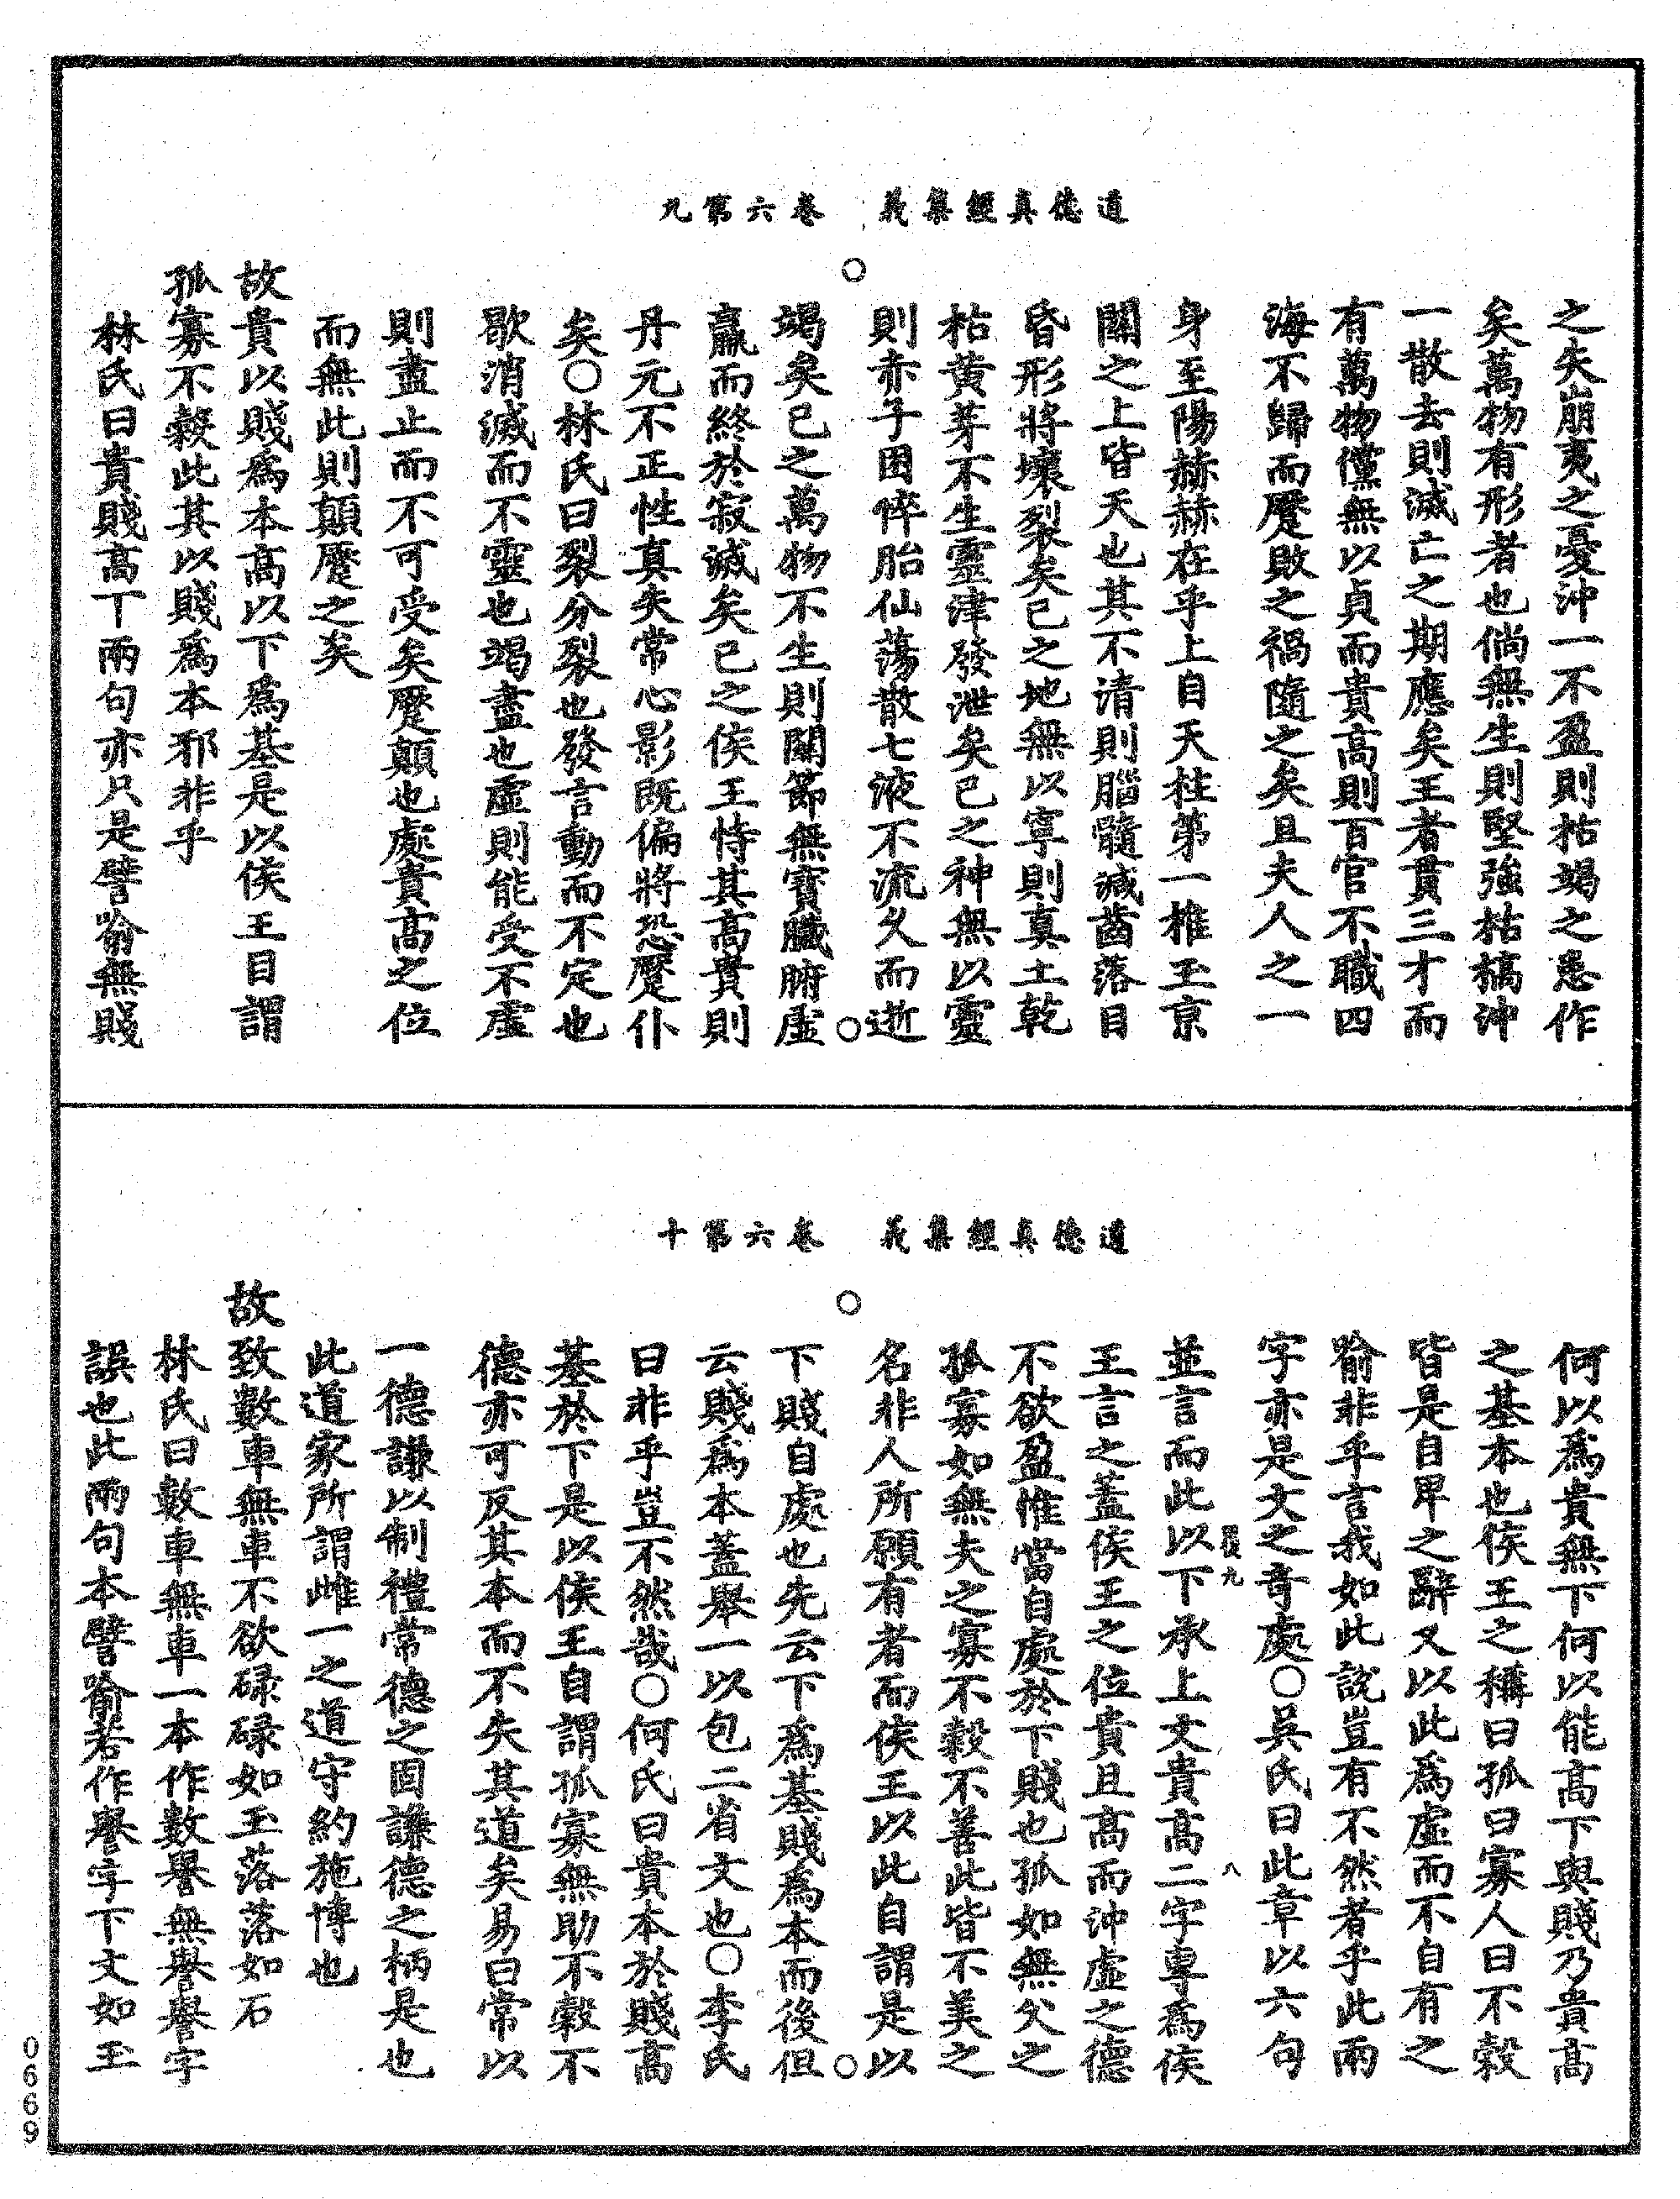 道德真經集義　卷六第九
之失崩夷之憂沖一不盈則枯竭之患作
矣萬物有形者也倘無生則堅強枯槁沖
一散去則滅亡之期應矣王者貫三才而
有萬物儻無以貞而貴高則百官不職四
海不歸而蹷敗之禍隨之矣且夫人之一
身至陽赫赫在乎上自天柱第一椎玉京
關之上皆天也其不清則腦髓減齒落目
昏形將壞裂矣己之地無以寧則真土乾
枯黃芽不生靈津發泄矣己之神無以靈
則赤子困悴胎仙蕩散七液不流久而逝
○　○
竭矣己之萬物不生則關節無寶臟腑虛
羸而終於寂滅矣己之侯王恃其高貴則
丹元不正性真失常心影既偏將恐蹷仆
矣○林氏曰裂分裂也發言動而不定也
歇消滅而不靈也竭盡也虛則能受不虛
則盡止而不可受矣蹷顛也處貴高之位
而無此則顛蹷之矣
故貴以賤為本高以下為基是以侯王自謂
孤寡不穀此其以賤為本邪非乎
林氏曰貴賤高丅兩句亦只是譬喻無賤
道德真經集義　卷六第十
何以為貴無下何以能高下與賤乃貴高
之基本也侯王之稱曰孤曰寡人曰不穀
皆是自卑之辭又以此為虛而不自有之
喻非乎言我如此說豈有不然者乎此兩
字亦是文之奇處○吳氏曰此章以六句
九　八
並言而此以下承上文貴高二字專為侯
王言之蓋侯王之位貴且高而沖虛之德
不欲盈惟當自處於下賤也孤如無父之
孤寡如無夫之寡不穀不善此皆不美之
名非人所願有者而侯王以此自謂是以
○　○
下賤自處也先云下為基賤為本而後但
云賤為本蓋舉一以包二省文也○李氏
曰非乎豈不然哉○何氏曰貴本於賤高
基於下是以侯王自謂孤寡無助不穀不
德亦可反其本而不失其道矣易曰常以
一德謙以制禮常德之固謙德之柄是也
此道家所謂雌一之道守約施博也
故致數車無車不欲碌碌如玉落落如石
林氏曰數車無車一本作數譽無譽譽字
誤也此兩句本譬喻若作譽字下文如玉
0669